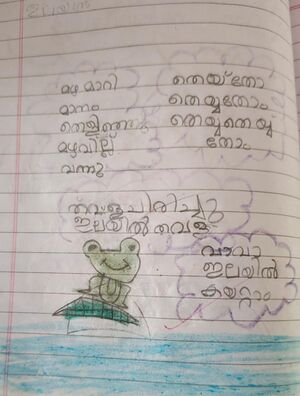 മഴ മാറി
മാനം
തെളിഞ്ഞു
മഴവില്ല്
വന്നു
തെയ്തോ
തെയ്യതോം
തെയ്യതെയ്യ
തോം
തവള ചിരിച്ചു
ഇലയിൽ തവള
വാവാ
ഇലയിൽ
കയറ്റാം